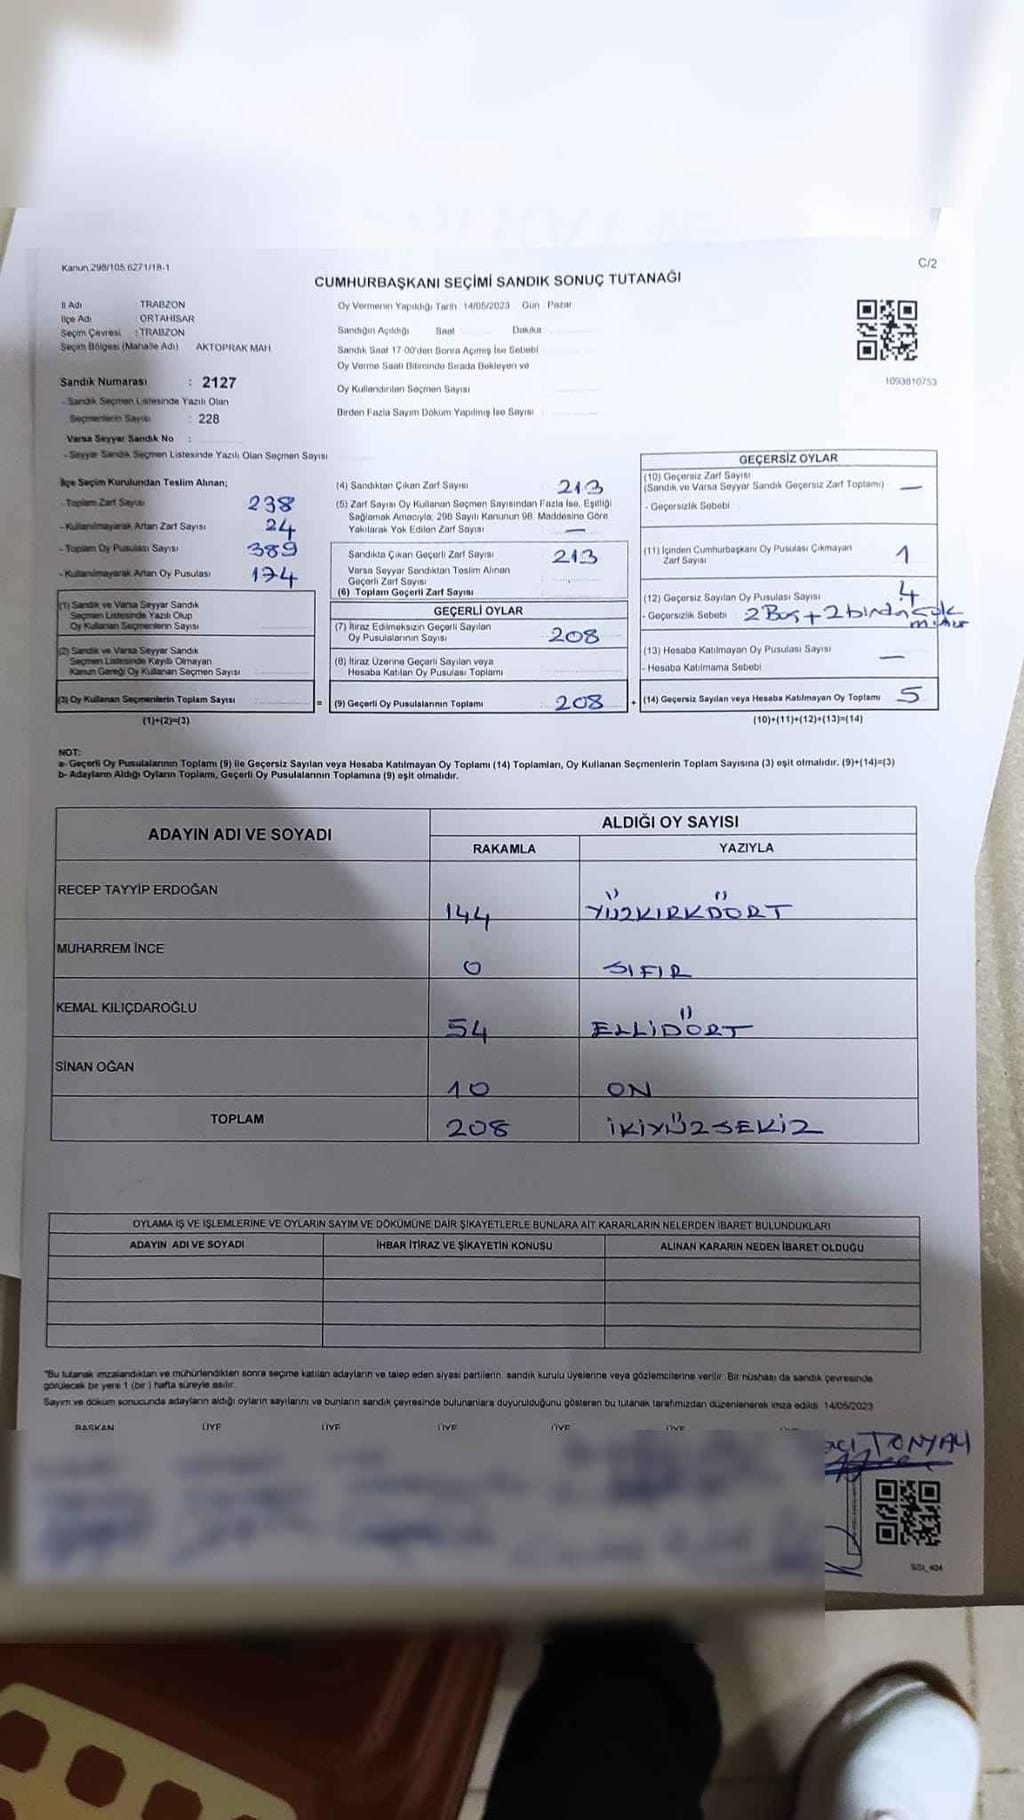 Kanun 298/105 6271/18-1
C/2
CUMHURBAŞKANI SEÇİMİ SANDIK SONUÇ TUTANAĞI
İl Adı : TRABZON
İlçe Adı : ORTAHİSAR
Seçim Çevresi : TRABZON
Seçim Bölgesi (Mahalle Adı) AKTOPRAK MAH
Sandık Numarası : 2127
- Sandık Seçmen Listesinde Yazılı Olan
Seçmenlerin Sayısı : 228
Varsa Seyyar Sandık No :
- Seyyar Sandık Seçmen Listesinde Yazılı Olan Seçmen Sayısı
Oy Vermenin Yapıldığı Tarih 14/05/2023 Gün Pazar
Sandığın Açıldığı Saat Dakika
Sandık Saat 17 00'den Sonra Açımış İse Sebebi
Oy Verme Saati Bitiminde Sırada Bekleyen ve
Oy Kullandırılan Seçmen Sayısı
Birden Fazla Sayım Döküm Yapılmış İse Sayısı
1093810753
İlçe Seçim Kurulundan Teslim Alınan;
- Toplam Zarf Sayısı 238
- Kullanılmayarak Artan Zarf Sayısı 24
- Toplam Oy Pusulası Sayısı 389
- Kullanılmayarak Artan Oy Pusulası 174
(1) Sandık ve Varsa Seyyar Sandık
Seçmen Listesinde Yazılı Olup
Oy Kullanan Seçmenlerin Sayısı
(2) Sandık ve Varsa Seyyar Sandık
Seçmen Listesinde Kayıtlı Olmayan
Kanun Gereği Oy Kullanan Seçmen Sayısı
(3) Oy Kullanan Seçmenlerin Toplam Sayısı
(1)+(2)=(3)
=
(4) Sandıktan Çıkan Zarf Sayısı 213
(5) Zarf Sayısı Oy Kullanan Seçmen Sayısından Fazla İse, Eşitliği
Sağlamak Amacıyla, 298 Sayılı Kanunun 98. Maddesine Göre
Yakılarak Yok Edilen Zarf Sayısı —
Sandıkta Çıkan Geçerli Zarf Sayısı 213
Varsa Seyyar Sandıktan Teslim Alınan
Geçerli Zarf Sayısı
(6) Toplam Geçerli Zarf Sayısı
GEÇERLİ OYLAR
(7) İtiraz Edilmeksizin Geçerli Sayılan
Oy Pusulalarının Sayısı 208
(8) İtiraz Üzerine Geçerli Sayılan veya
Hesaba Katılan Oy Pusulası Toplamı
(9) Geçerli Oy Pusulalarının Toplamı 208
+
GEÇERSİZ OYLAR
(10) Geçersiz Zarf Sayısı
(Sandık ve Varsa Seyyar Sandık Geçersiz Zarf Toplamı) —
- Geçersizlik Sebebi
(11) İçinden Cumhurbaşkanı Oy Pusulası Çıkmayan
Zarf Sayısı 1
(12) Geçersiz Sayılan Oy Pusulası Sayısı 4
- Geçersizlik Sebebi 2 Boş + 2 birden çok
mühür
(13) Hesaba Katılmayan Oy Pusulası Sayısı —
- Hesaba Katılmama Sebebi
(14) Geçersiz Sayılan veya Hesaba Katılmayan Oy Toplamı 5
(10)+(11)+(12)+(13)=(14)
NOT:
a- Geçerli Oy Pusulalarının Toplamı (9) ile Geçersiz Sayılan veya Hesaba Katılmayan Oy Toplamı (14) Toplamları, Oy Kullanan Seçmenlerin Toplam Sayısına (3) eşit olmalıdır. (9)+(14)=(3)
b- Adayların Aldığı Oyların Toplamı, Geçerli Oy Pusulalarının Toplamına (9) eşit olmalıdır.
ADAYIN ADI VE SOYADI
ALDIĞI OY SAYISI
RAKAMLA YAZIYLA
RECEP TAYYİP ERDOĞAN 144 YÜZKIRKDÖRT
MUHARREM İNCE 0 SIFIR
KEMAL KILIÇDAROĞLU 54 ELLİDÖRT
SİNAN OĞAN 10 ON
TOPLAM 208 İKİYÜZSEKİZ
OYLAMA İŞ VE İŞLEMLERİNE VE OYLARIN SAYIM VE DÖKÜMÜNE DAİR ŞİKAYETLERLE BUNLARA AİT KARARLARIN NELERDEN İBARET BULUNDUKLARI
ADAYIN ADI VE SOYADI İHBAR İTİRAZ VE ŞİKAYETİN KONUSU ALINAN KARARIN NEDEN İBARET OLDUĞU
"Bu tutanak imzalandıktan ve mühürlendikten sonra seçime katılan adayların ve talep eden siyasi partilerin sandık kurulu üyelerine veya gözlemcilerine verilir Bir nüshası da sandık çevresinde
görülecek bir yere 1 (bir ) hafta süreyle asılır
Sayım ve döküm sonucunda adayların aldığı oyların sayılarını ve bunların sandık çevresinde bulunanlara duyurulduğunu gösteren bu tutanak tarafımızdan düzenlenerek imza edildi 14/05/2023
BAŞKAN ÜYE ÜYE ÜYE ÜYE ÜYE
TONYALI